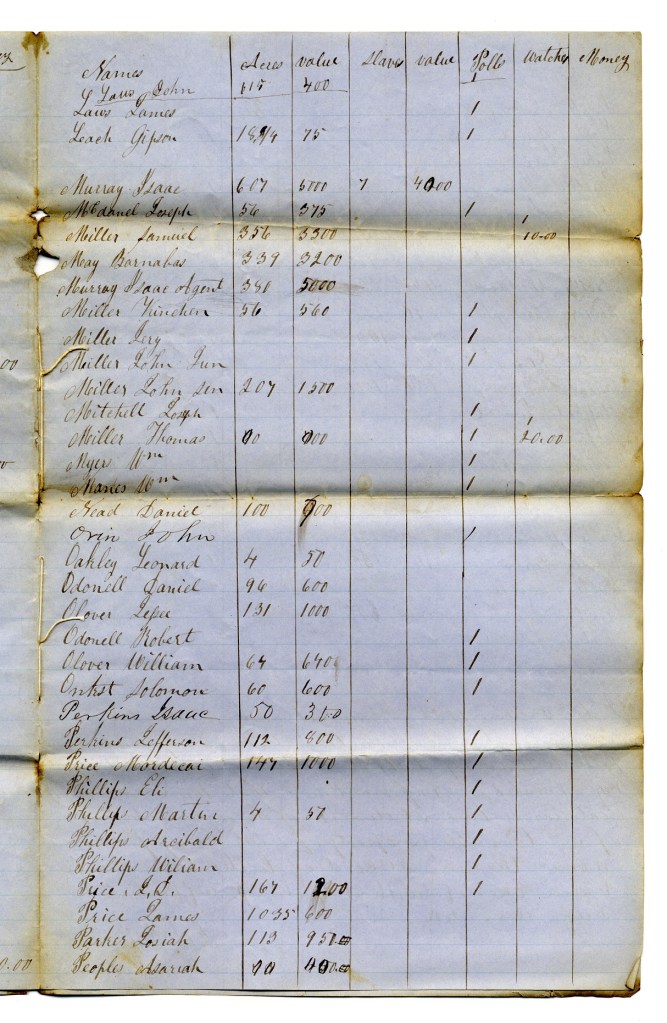 Names Acres value Slaves value Polls Watches Money
Laws John 115 400 1
Laws James 1
Leach Gipson 18 3/4 75 1
Murray Isaac 607 6000 7 4000
McdanelJoseph 56 375 1
Miller Samuel 356 3300 1 10.00
May Barnabas 339 3200
Murray Isaac Agent 380 5000
Miller Kinchen 56 560 1
Miller Jery 1
Miller John Jun 1
Miller John sen 207 1500
Mitchell Joseph 1
Miller Thomas 1 1 20.00
Myer Wm 1
Manes Wm 1
Nead Daniel 100
Orin John 1
Oakley Leonard 4 50
Odonell Daniel 96 600
Olover Jesse 131 1000
Odonell Robert 1
Olover William 64 640 1
Onkst Solomon 60 600 1
Perkins Isaac 50 300
Perkins Jefferson 112 800 1
Price Mordecai 147 1000 1
Phillips Eli 1
Phillips Martin 4 50 1
Phillips Archibald 1
Phillips William 1
Price L.L. 167 1200 1
Price James 1035 600
Parker Josiah 113 950.00
Peoples Asariah 400.00